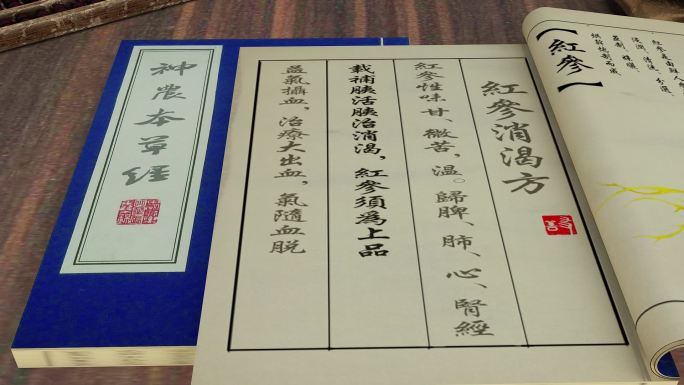 神農本草經
紅參消渴方
紅參性味甘、微苦，溫。歸脾、肺、心、腎經
載補胰活胰治消渴，紅參須為上品
益氣攝血，治療大出血，氣隨血脫
【紅參】
清洗、分選、
蒸制、
烘幹炮制而成